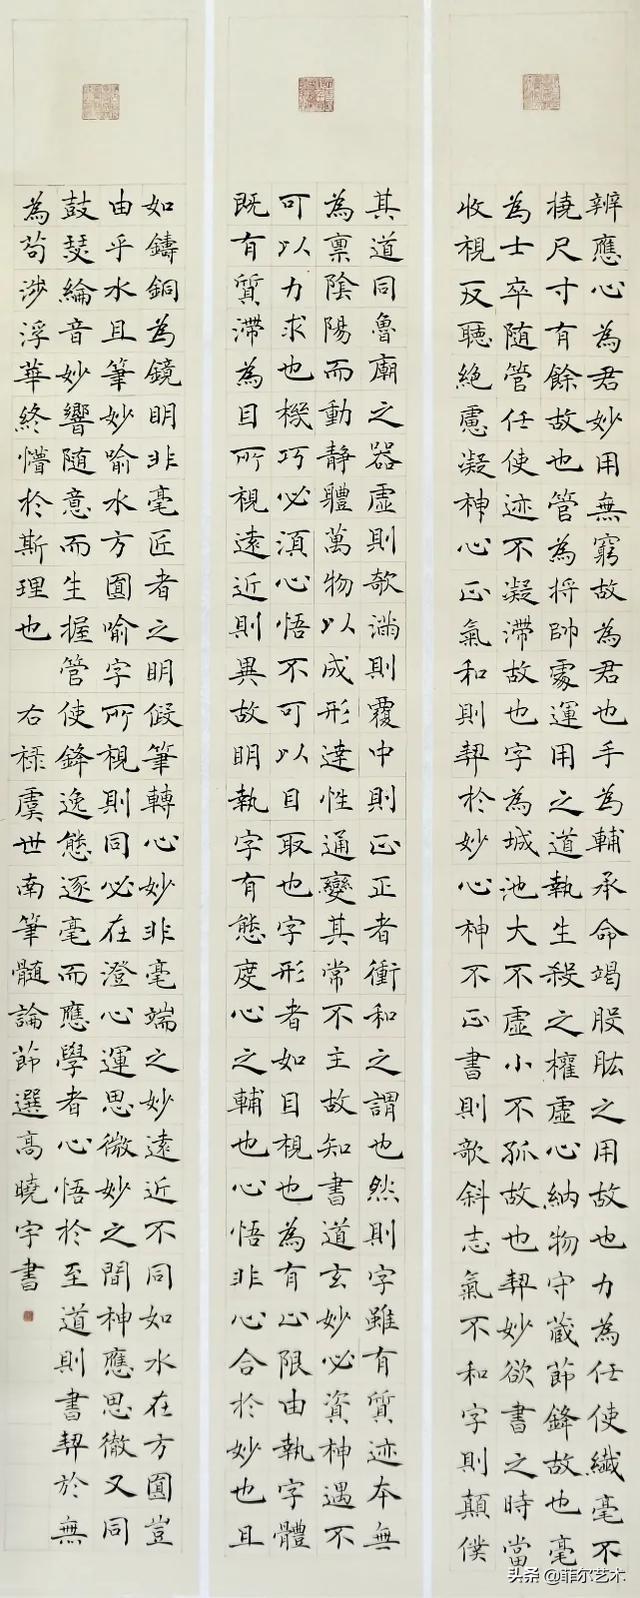 辨應心為君妙用無窮故為君也手為輔承命竭股肱之用故也力為任使纖毫不
撓尺寸有餘故也管為將帥處運用之道執生殺之權虛心納物守藏節鋒故也毫
為士卒随管任使迹不凝滯故也字為城池大不虛小不孤故也契妙欲書之時當
收視反聽絕慮凝神心正氣和則契於妙心神不正書則欹斜志氣不和字則顛僕
其道同魯廟之器虛則欹滿則覆中則正正者衝和之謂也然則字雖有質迹本無
為稟陰陽而動靜體萬物以成形達性通變其常不主故知書道玄妙必資神遇不
可以力求也機巧必須心悟不可以目取也字形者如目視也為有止限由執字體
既有質滯為目所視遠近則異故明執字有態度心之輔也心悟非心合於妙也且
如鑄銅為鏡明非毫匠者之明假筆轉心妙非毫端之妙遠近不同如水在方圓豈
由乎水且筆妙喻水方圓喻字所視則同必在澄心運思微妙之間神應思徹又同
鼓瑟綸音妙響随意而生握管使鋒逸態逐毫而應學者心悟於至道則書契於無
為苟涉浮華終懵於斯理也 右祿虞世南筆髓論節選高曉宇書
头条 @菲尔艺术